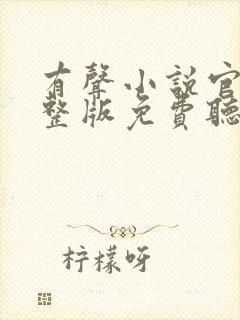 有聲小說官
整版免費聽
柠檬呀